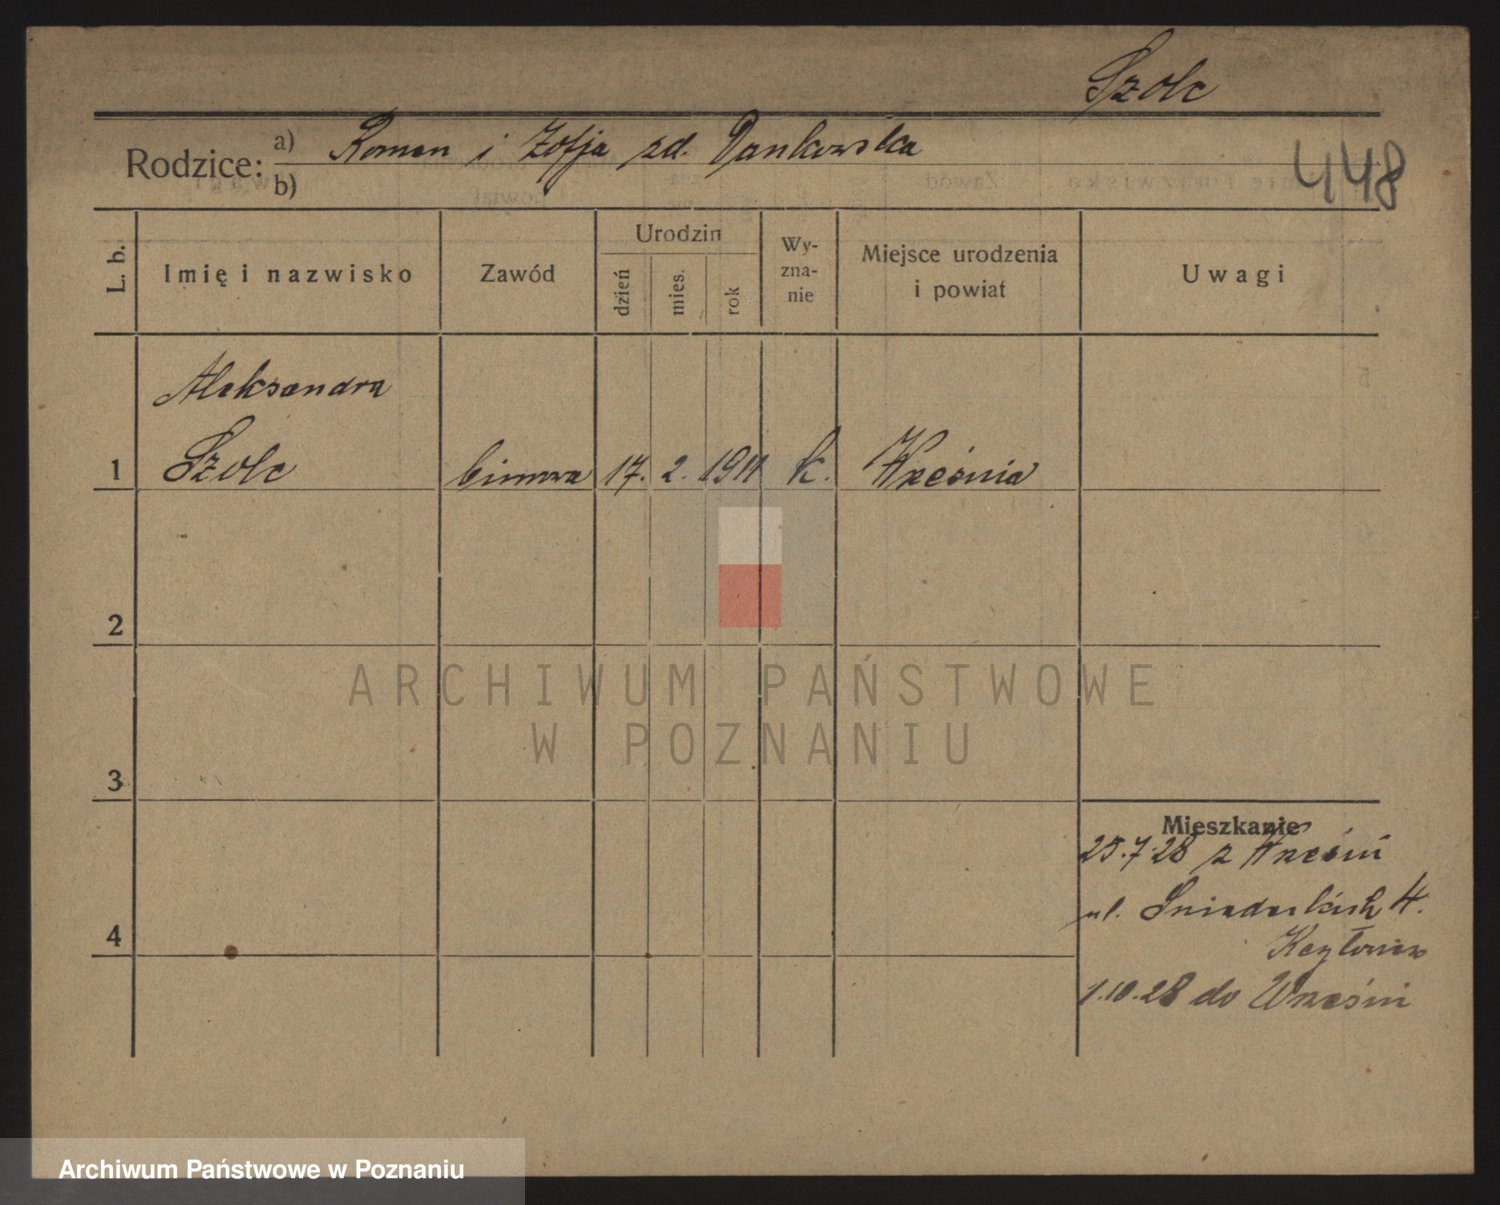 Szolc
Rodzice: a) Roman i Zofja zd. Dankowska
b)
448
L. b.
Imię i nazwisko
Zawód
Urodzin
dzień
mies.
rok
Wy-
zna-
nie
Miejsce urodzenia
i powiat
Uwagi
Aleksandra
1 Szolc biurowa 17. 2. 1911 k. Września
2
3
4
Mieszkanie
25.7.28 z Wrześni
ul. Śniadeckich 4.
1.10.28 do Wrześni
ARCHIWUM PAŃSTWOWE
W POZNANIU
Archiwum Państwowe w Poznaniu